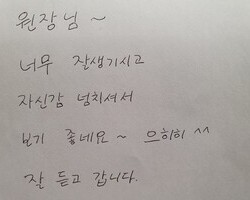 원장님 ~
너무 잘생기시고
자신감 넘치셔서
보기 좋네요 ~ 으히히 ^^
잘 듣고 갑니다.